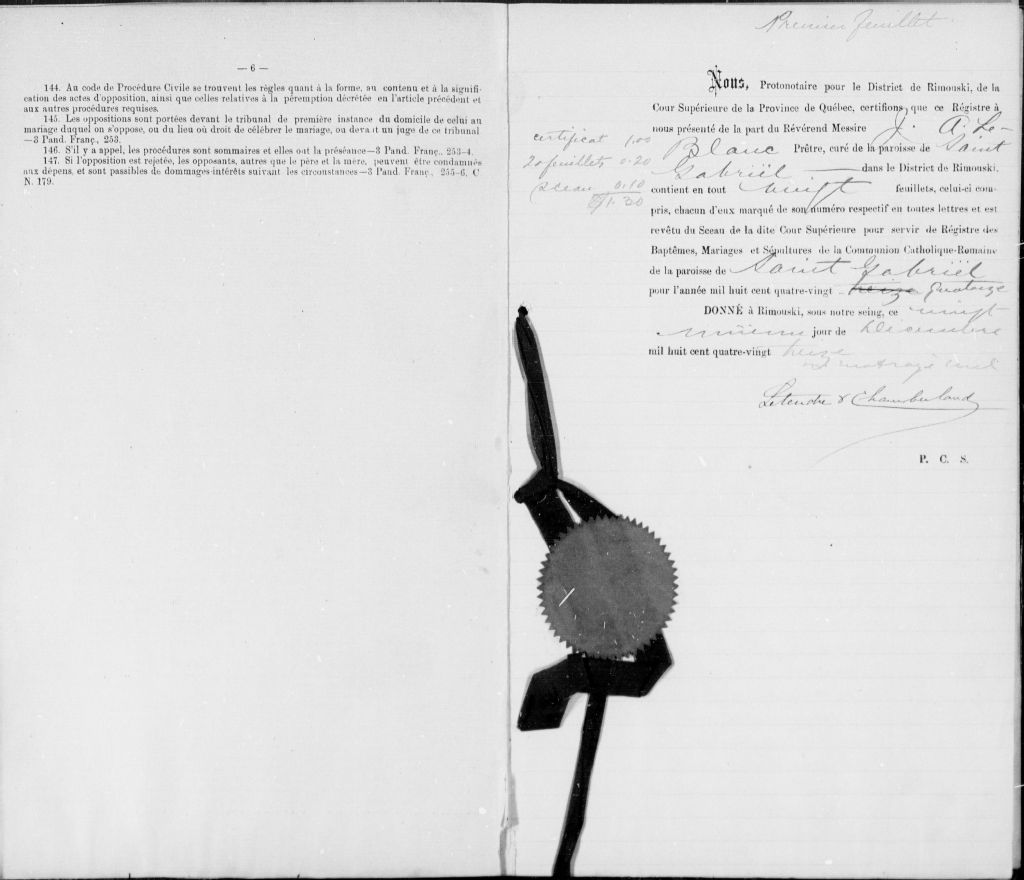 — 6 —
144. Au code de Procédure Civile se trouvent les règles quant à la forme, au contenu et à la signifi-
cation des actes d'opposition, ainsi que celles relatives à la péremption décrétée en l'article précédent et
aux autres procédures requises.
145. Les oppositions sont portées devant le tribunal de première instance du domicile de celui au
mariage duquel on s'oppose, ou du lieu où droit de célébrer le mariage, ou devant un juge de ce tribunal
—3 Pand. Franç., 253.
146. S'il y a appel, les procédures sont sommaires et elles ont la préséance—3 Pand. Franç., 253-4.
147. Si l'opposition est rejetée, les opposants, autres que le père et la mère, peuvent être condamnés
aux dépens, et sont passibles de dommages-intérêts suivant les circonstances—3 Pand. Franç., 255-6, C
N. 179.
Premier feuillet
Nous, Protonotaire pour le District de Rimouski, de la
Cour Supérieure de la Province de Québec, certifions que ce Régistre à
nous présenté de la part du Révérend Messire J. A. Le-
Blanc Prêtre, curé de la paroisse de Saint
Gabriël — dans le District de Rimouski,
contient en tout vingt feuillets, celui-ci com-
pris, chacun d'eux marqué de son numéro respectif en toutes lettres et est
revêtu du Sceau de la dite Cour Supérieure pour servir de Régistre des
Baptêmes, Mariages et Sépultures de la Communion Catholique-Romaine
de la paroisse de Saint Gabriël
pour l'année mil huit cent quatre-vingt - treize quatorze
DONNÉ à Rimouski, sous notre seing, ce vingt
jour de Décembre
mil huit cent quatre-vingt treize
Letendre & Chamberland
P. C. S.
certificat 1.00
20 feuillets 0.20
sceau 0.10
$1.30